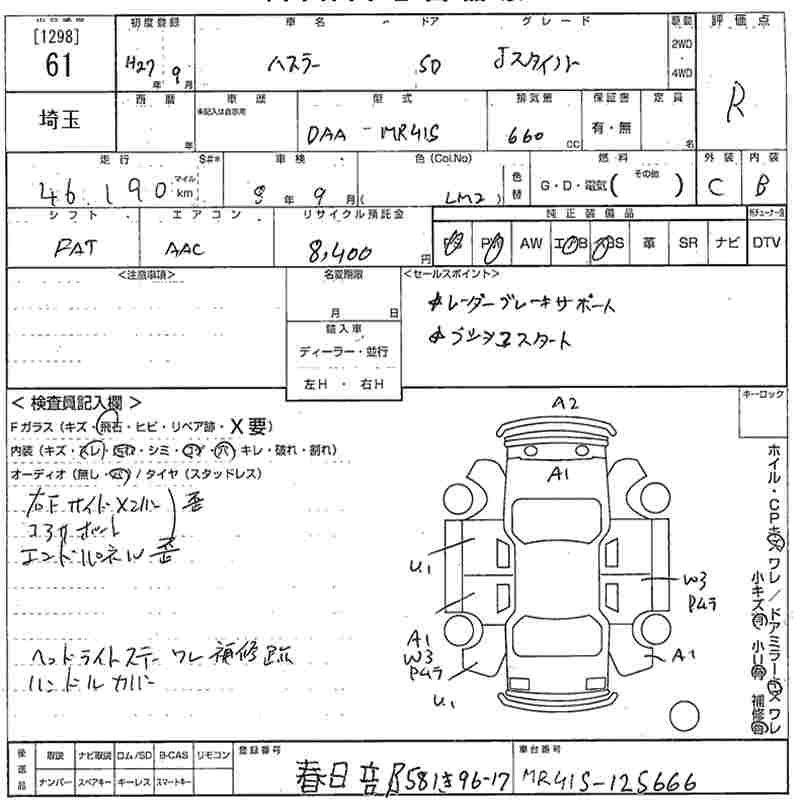 [1298]
61
埼玉
初度登録
H27 年 9 月
車名
ハスラー
ドア
5D
グレード
Jスタイル
駆動
2WD
・
4WD
評価点
R
西暦
年
車歴
未記入は自家用
型式
DAA - MR41S
排気量
660 CC
保証書
有・無
定員
名
走行
46,190 マイル km
S#*
車検
年 9 月
色 (Col.No)
( LM2 )
色替
燃料
G・D・電気( その他 )
外装
C
内装
B
シフト
FAT
エアコン
AAC
リサイクル預託金
8,400 円
純正装備品
PS PW AW エアB ABS 革 SR ナビ
DTV
<注意事項>
名変期限
月 日
輸入車
ディーラー・並行
左H ・ 右H
<セールスポイント>
☆レーダーブレーキサポート
☆プッシュスタート
<検査員記入欄>
Fガラス (キズ・飛石・ヒビ・リペア跡・X要)
内装 (キズ・スレ・汚れ・シミ・コゲ・穴・キレ・破れ・割れ)
オーディオ (無し・ )/ タイヤ (スタッドレス)
右F サイドメンバー
コアサポート
歪
エンドパネル 歪
ヘッドライトステー ワレ 補修跡
ハンドル カバー
キーロック
A2
A1
U1
W3
Pムラ
A1
W3
Pムラ
U1
A1
ホイル・CPキズ ワレ / ドアミラーキズ ワレ
小キズ有 小U有 補修有
後送品
取説 ナビ取説 ロム/SD B-CAS リモコン
ナンバー スペアキー キーレス スマートキー
登録番号
春日部 581き96-17
車台番号
MR41S-125666